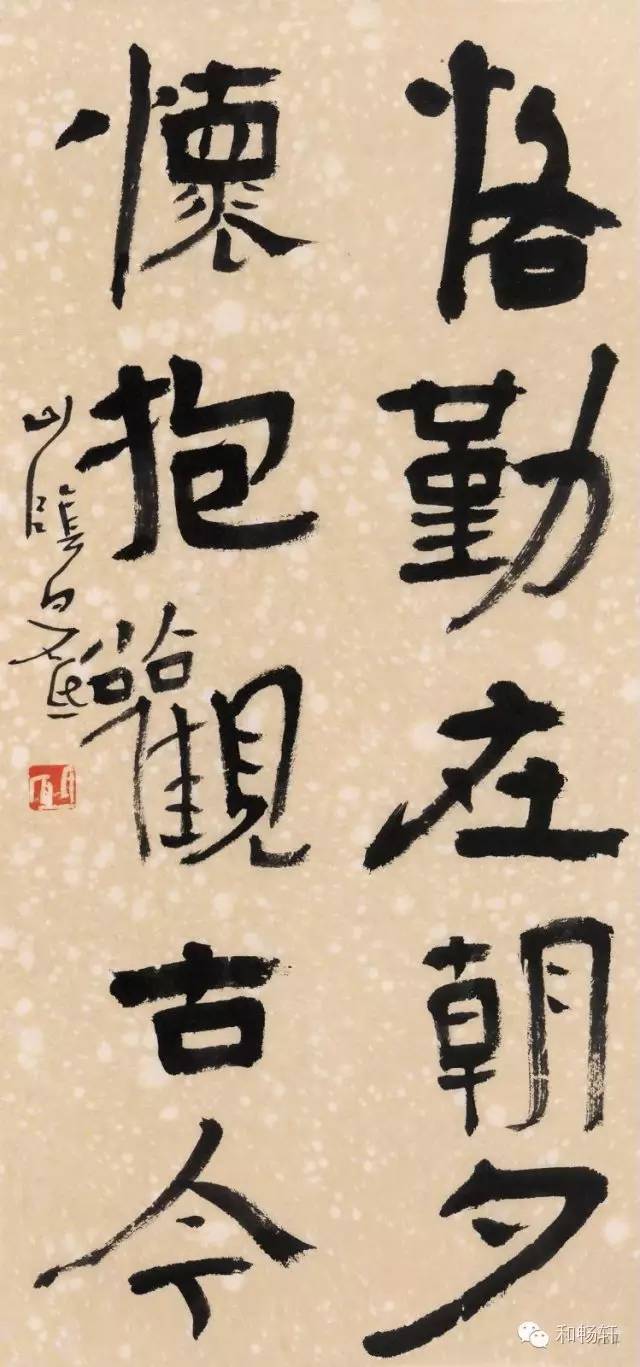 恪勤在朝夕
懷抱觀古今
山陰
和畅轩